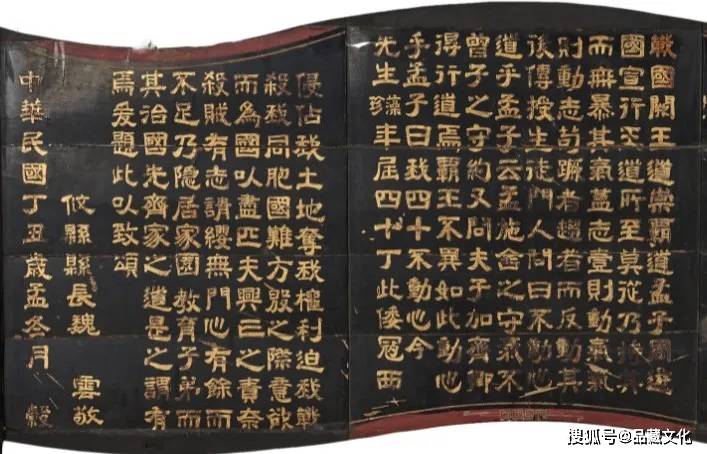 戰國闕王道崇霸道孟子周遊
國宣行王道所至莫從乃持其
而無暴其氣蓋志壹則動氣氣
則動志苟蹶者趨者而反動其
後傳授生徒門人問曰不動
道乎孟子云孟施舍之守氣不
曾子之守約又問夫子加齊卿
得行道焉霸王不異如此動心
乎孟子曰我四十不動心今
先生藻珍年屆四十丁此倭寇西
侵佔我土地奪我權利迫我戰
殺我同胞國難方殷之際意欲
而為國以盡匹夫興亡之責奈
殺賊有志請纓無門心有餘而
不足乃隱居家園教育子弟而
其治國先齊家之道是之謂有
焉爰題此以致頌
攸縣縣長魏雲敬
中華民國丁丑歲孟冬月穀
搜狐号@品藏文化